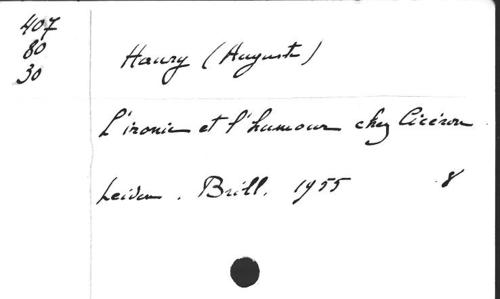 407
80
30
Haury (Auguste)
L'ironie et l'humour chez Cicéron
Leiden. Brill. 1955 8